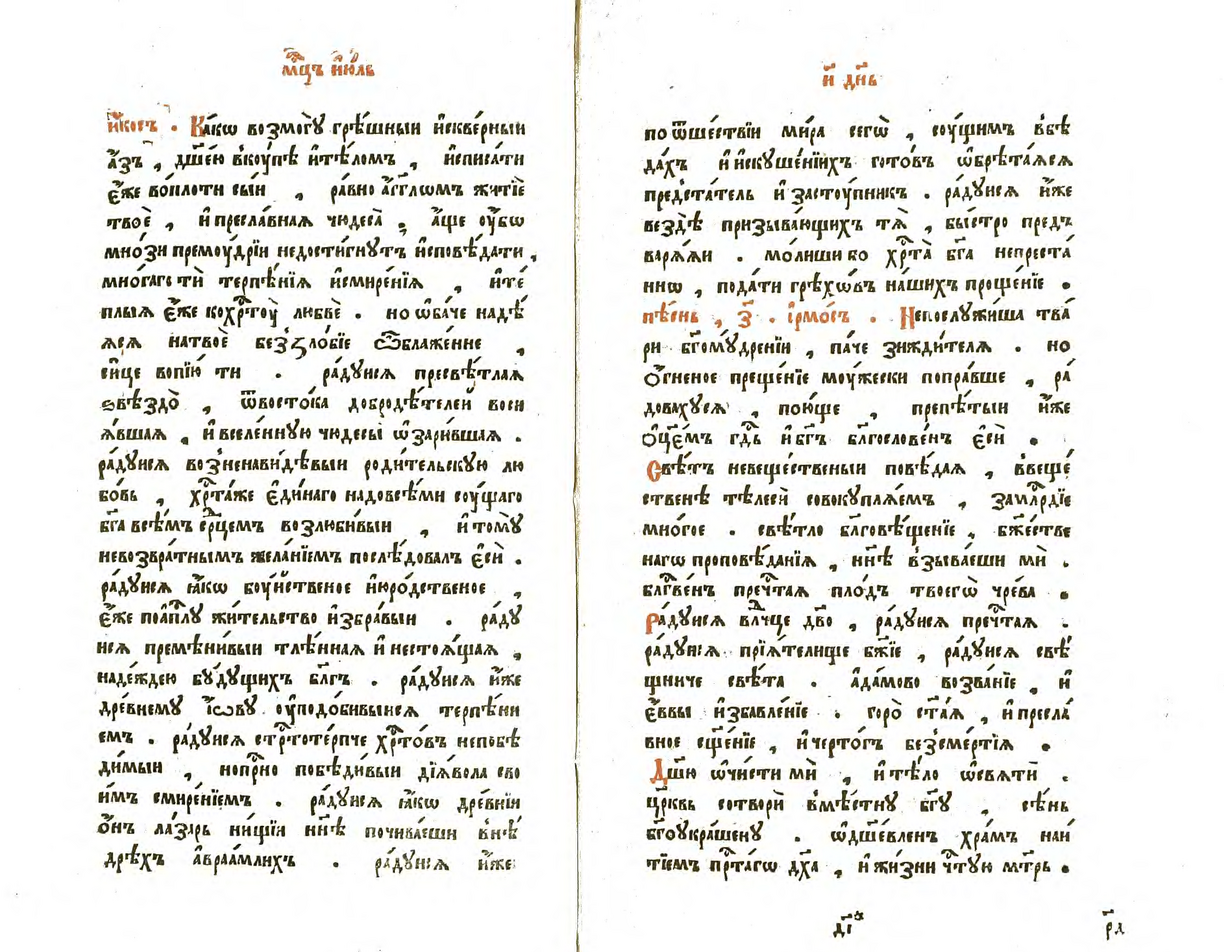 мⷭ҇цъ и҆ю́ль
и҃ дн҃ь
и҆́косъ . Ка́кѡ возмогꙋ̀ грѣ́шныи и҆скве́рныи
а҆́зъ , дш҃е́ю вкоу́пѣ и҆тѣ́ломъ , и҆списа́ти
є҆́же во́плоти сы́и , ра́вно а҆́гг҃лѡмъ житїѐ
твоѐ , и҆пресла́вная чюдеса̀ , а҆́ще оу҆́бѡ
мно́зи премоу́дрїи недости́гнꙋтъ и҆сповѣ́дати ,
мно́гаго тѝ терпѣ́нїѧ и҆смире́нїѧ , и҆те́
плыѧ є҆́же кохрⷭ҇тоу̀ любвѐ . но ѡ҆ба́че надѣ́
ѧсѧ натвоѐ беззло́бїе ѿблаже́нне ,
си́це вопїю̀ ти . ра́дꙋисѧ пресвѣ́тлаѧ
ѕвѣздо̀ , ѿвосто́ка добродѣ́телей воси
ѧ́вшаѧ , и҆вселе́ннꙋю чюдесы̀ ѡ҆зари́вшаѧ .
ра́дꙋисѧ возненави́дѣвыи роди́тельскꙋю лю
бо́вь , хрⷭ҇та́же є҆ди́наго надовсѣ́ми соу́щаго
бг҃а всѣ́мъ срⷣцемъ возлюби́выи , и҆томꙋ̀
невозвра́тнымъ жела́нїемъ послѣ́довалъ є҆сѝ .
ра́дꙋисѧ ꙗ҆́кѡ боу́иственое и҆юро́дственое ,
є҆́же поа҆пⷭ҇лꙋ жи́тельство и҆збра́выи . ра́дꙋ
исѧ премѣни́выи тлѣ́ннаѧ и҆ нестоѧ́щаѧ ,
наде́ждею бꙋ́дꙋщихъ бл҃гъ . ра́дꙋисѧ и҆́же
дре́внемꙋ і҆́ѡвꙋ оу҆подо́бивыисѧ терпѣ́ни
емъ . ра́дꙋисѧ стрⷭ҇тоте́рпче хрⷭ҇то́въ непобѣ
ди́мыи , нопрⷭ҇но побѣди́выи дїѧ́вола сво
и́мъ смире́нїемъ . ра́дꙋисѧ ꙗ҆́кѡ дре́внїи
ѻ҆́нъ ла́зарь ни́щїи нн҃ѣ почива́еши внѣ́
дрѣхъ а҆враа́млихъ . ра́дꙋисѧ и҆́же
по ѿше́ствїи ми́ра сегѡ̀ , соу́щимъ вбѣ
да́хъ и҆ и҆скꙋше́нїихъ гото́въ ѡ҆брѣта́ѧсѧ
предста́тель и҆ засто́упникъ . ра́дꙋисѧ и҆́же
вездѣ̀ призыва́ющихъ тѧ̀ , бы́стро предъ
варѧ́ѧи . мо́лиши бо хрⷭ҇та̀ бг҃а непреста́
ннѡ , пода́ти грѣхѡ́въ на́шихъ проще́нїе .
пѣ́снь , з҃ . і҆рмо́съ . Непослꙋжи́ша тва́
ри бг҃омꙋ́дренїи , па́че зижди́телѧ . но
ѻ҆́гненое преще́нїе моу́жески попра́вше , ра́
довахꙋсѧ , пою́ще , препѣ́тыи и҆́же
ѻ҆ц҃е́мъ гдⷭ҇ь и҆ бг҃ъ бл҃гослове́нъ є҆сѝ .
Свѣ́тъ невеще́ственыи повѣ́даѧ , ввеще́
ственѣ тѣлесѝ совокꙋплѧ́емъ , замлⷭ҇рдїе
мно́гое . свѣ́тло бл҃говѣ́щенїе , бж҃е́стве
нагѡ проповѣ́данїѧ , нн҃ѣ взыва́еши мѝ .
бл҃гве́нъ пречⷭ҇таѧ пло́дъ твоегѡ̀ чре́ва .
Ра́дꙋисѧ влⷣчце дв҃о , ра́дꙋисѧ пречⷭ҇таѧ .
ра́дꙋисѧ прїѧ́телище бж҃їе , ра́дꙋисѧ свѣ́
щниче свѣ́та . а҆да́мово возва́нїе , и҆
є҆́ввы и҆збавле́нїе . горо̀ ст҃а́ѧ , и҆ пресла́
вное сщ҃е́нїе , и҆ черто́гъ безсме́ртїѧ .
Дш҃ю ѡ҆чи́сти мѝ , и҆ тѣ́ло ѡ҆свѧтѝ .
цр҃ковь сотворѝ вмѣ́стнꙋ бг҃ꙋ , сѣ́нь
бг҃оукра́шенꙋ . ѡ҆дш҃евле́нъ хра́мъ наи́
тїемъ прⷭ҇та́гѡ дх҃а , и҆ жи́зни чⷭ҇тꙋю мт҃рь .
дı҃ рл